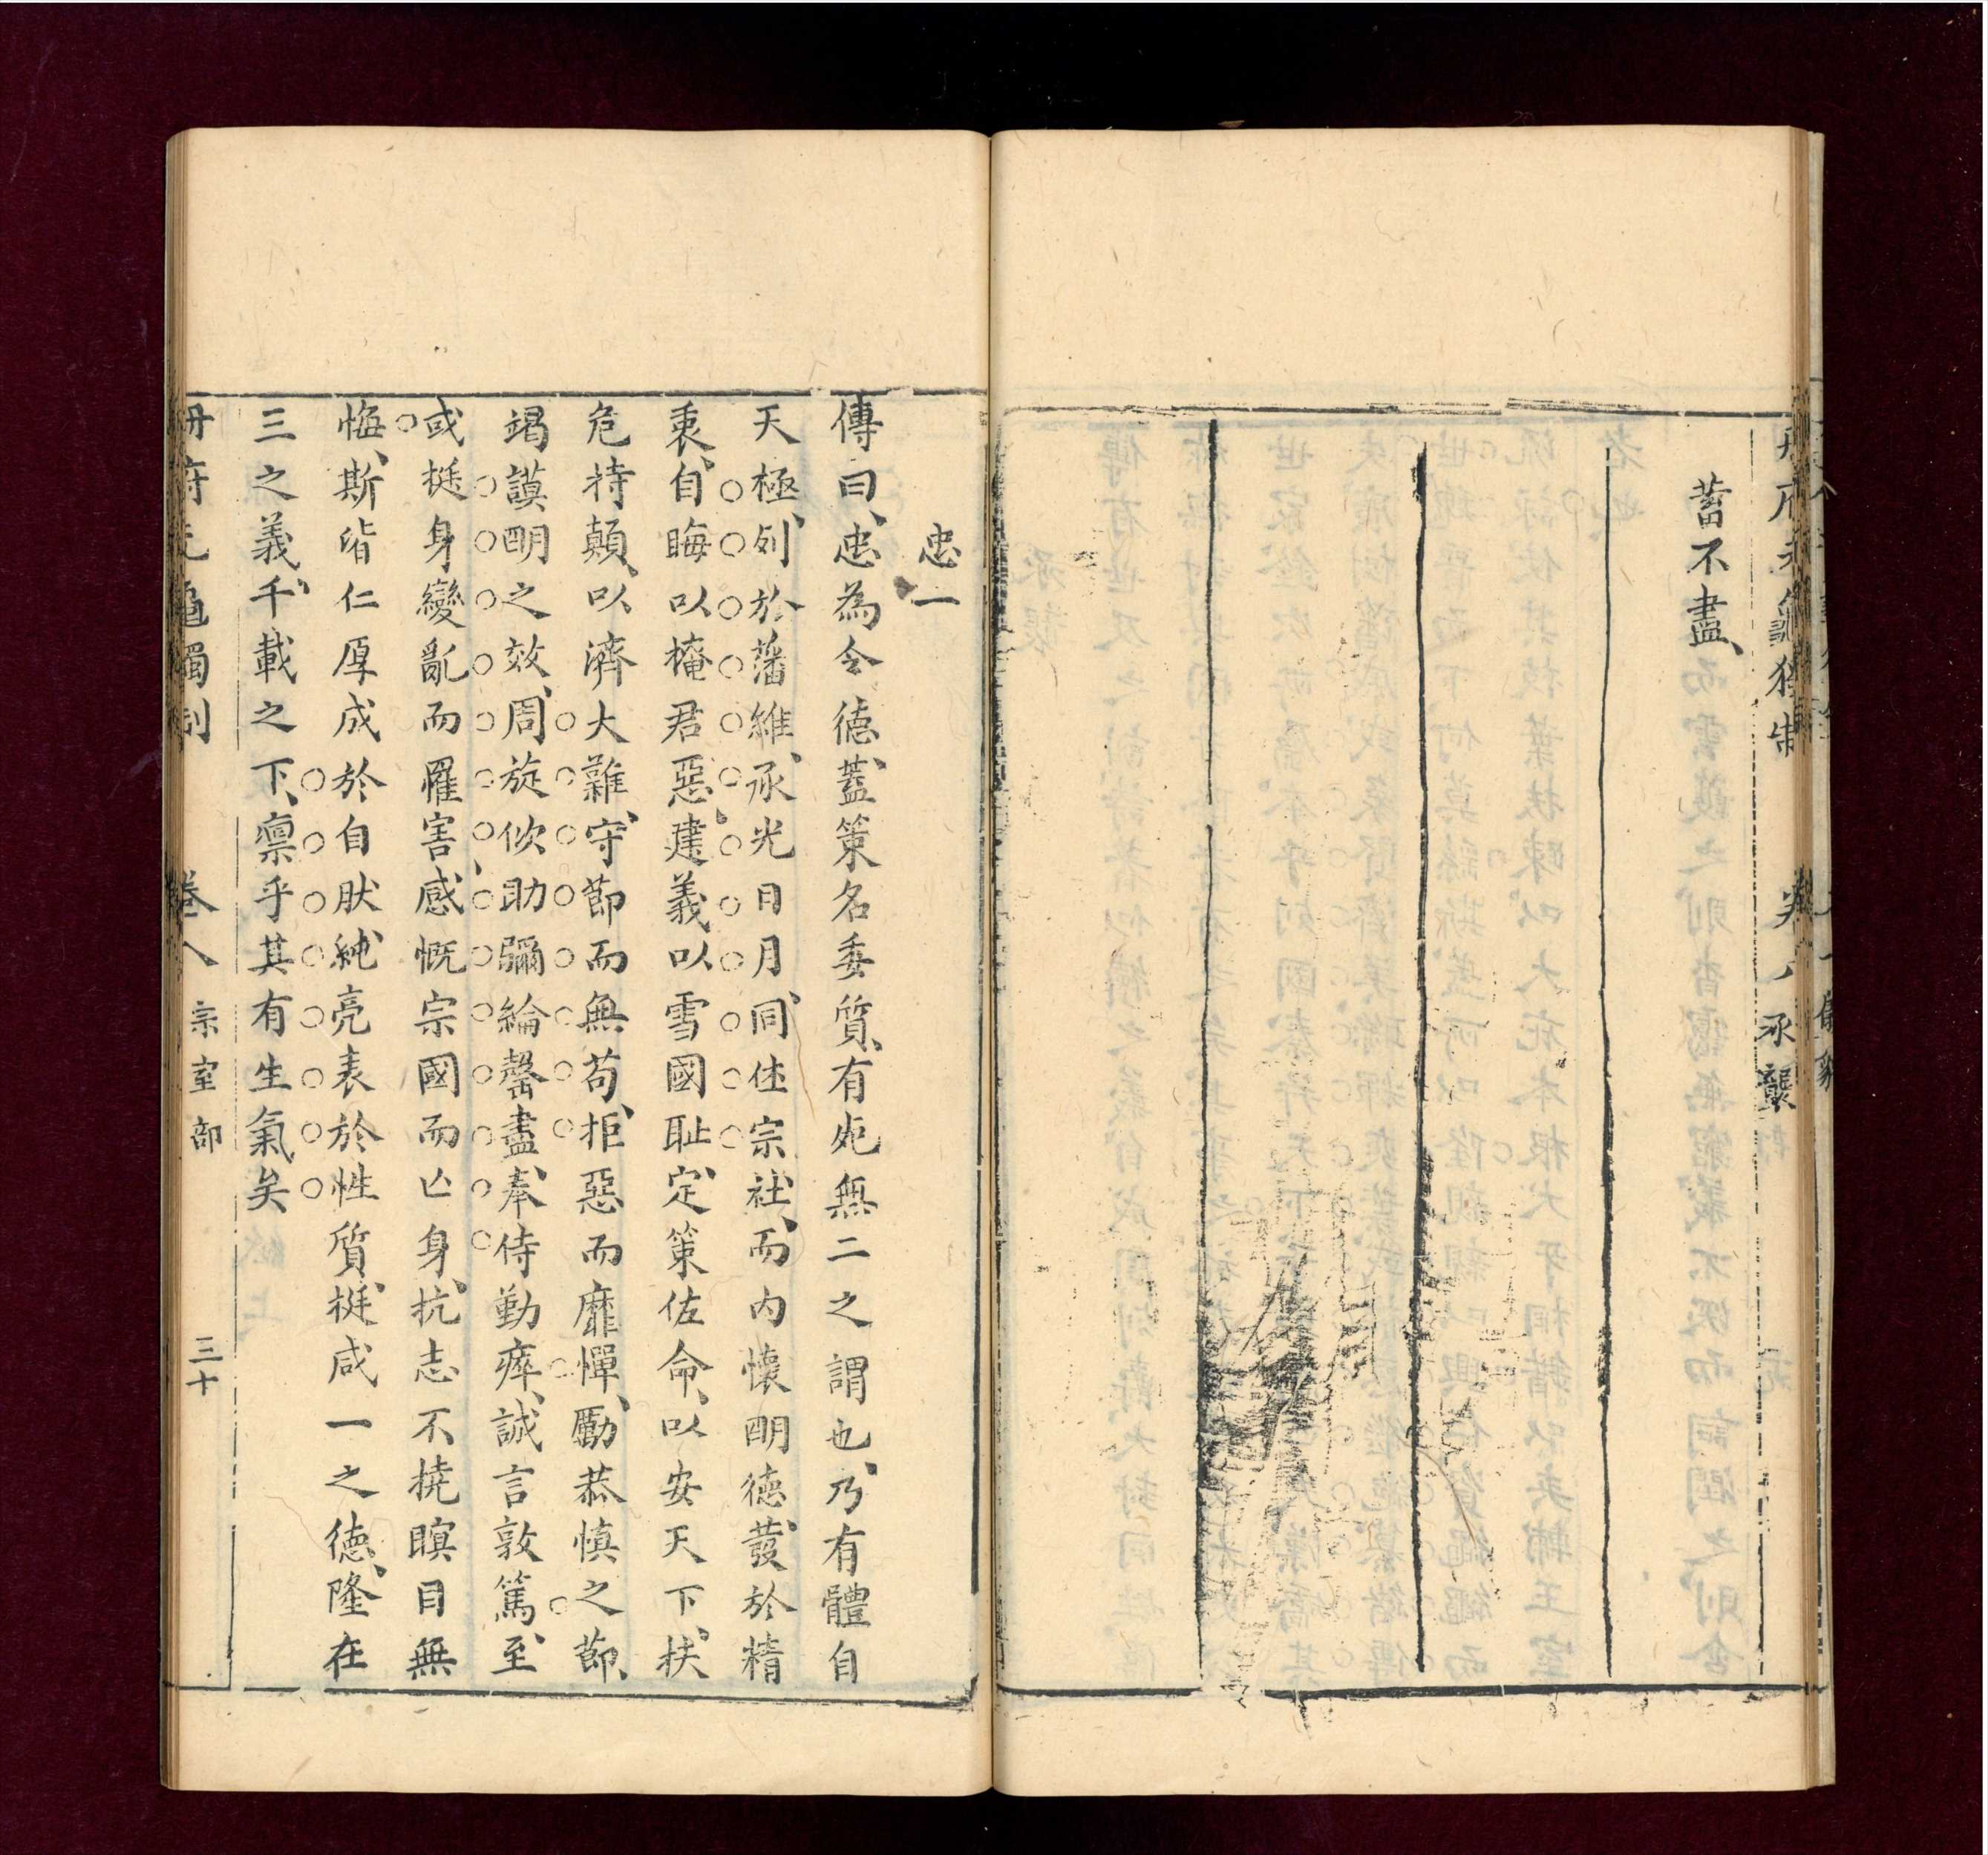 冊府元龜獨制 卷八 承襲
蓄不盡、
忠一
傳曰、忠為令德、蓋策名委質、有死無二之謂也、乃有體自
天極、列於藩維、承光日月、同休宗社、而内懷明德、發於精
衷、自晦以掩君惡、建義以雪國耻、定策佐命、以安天下、扶
危持顛、以濟大難、守節而無苟、拒惡而靡憚、勵恭慎之節、
竭謨明之效、周旋佽助、彌綸罄盡、奉侍勤瘁、誠言敦篤、至
或挺身變亂而罹害、感慨宗國而亡身、抗志不撓、瞑目無
悔、斯皆仁厚成於自肰、純亮表於性質、挺咸一之德、隆在
三之義、千載之下、凛乎其有生氣矣
冊府元龜獨制 卷八 宗室部 三十